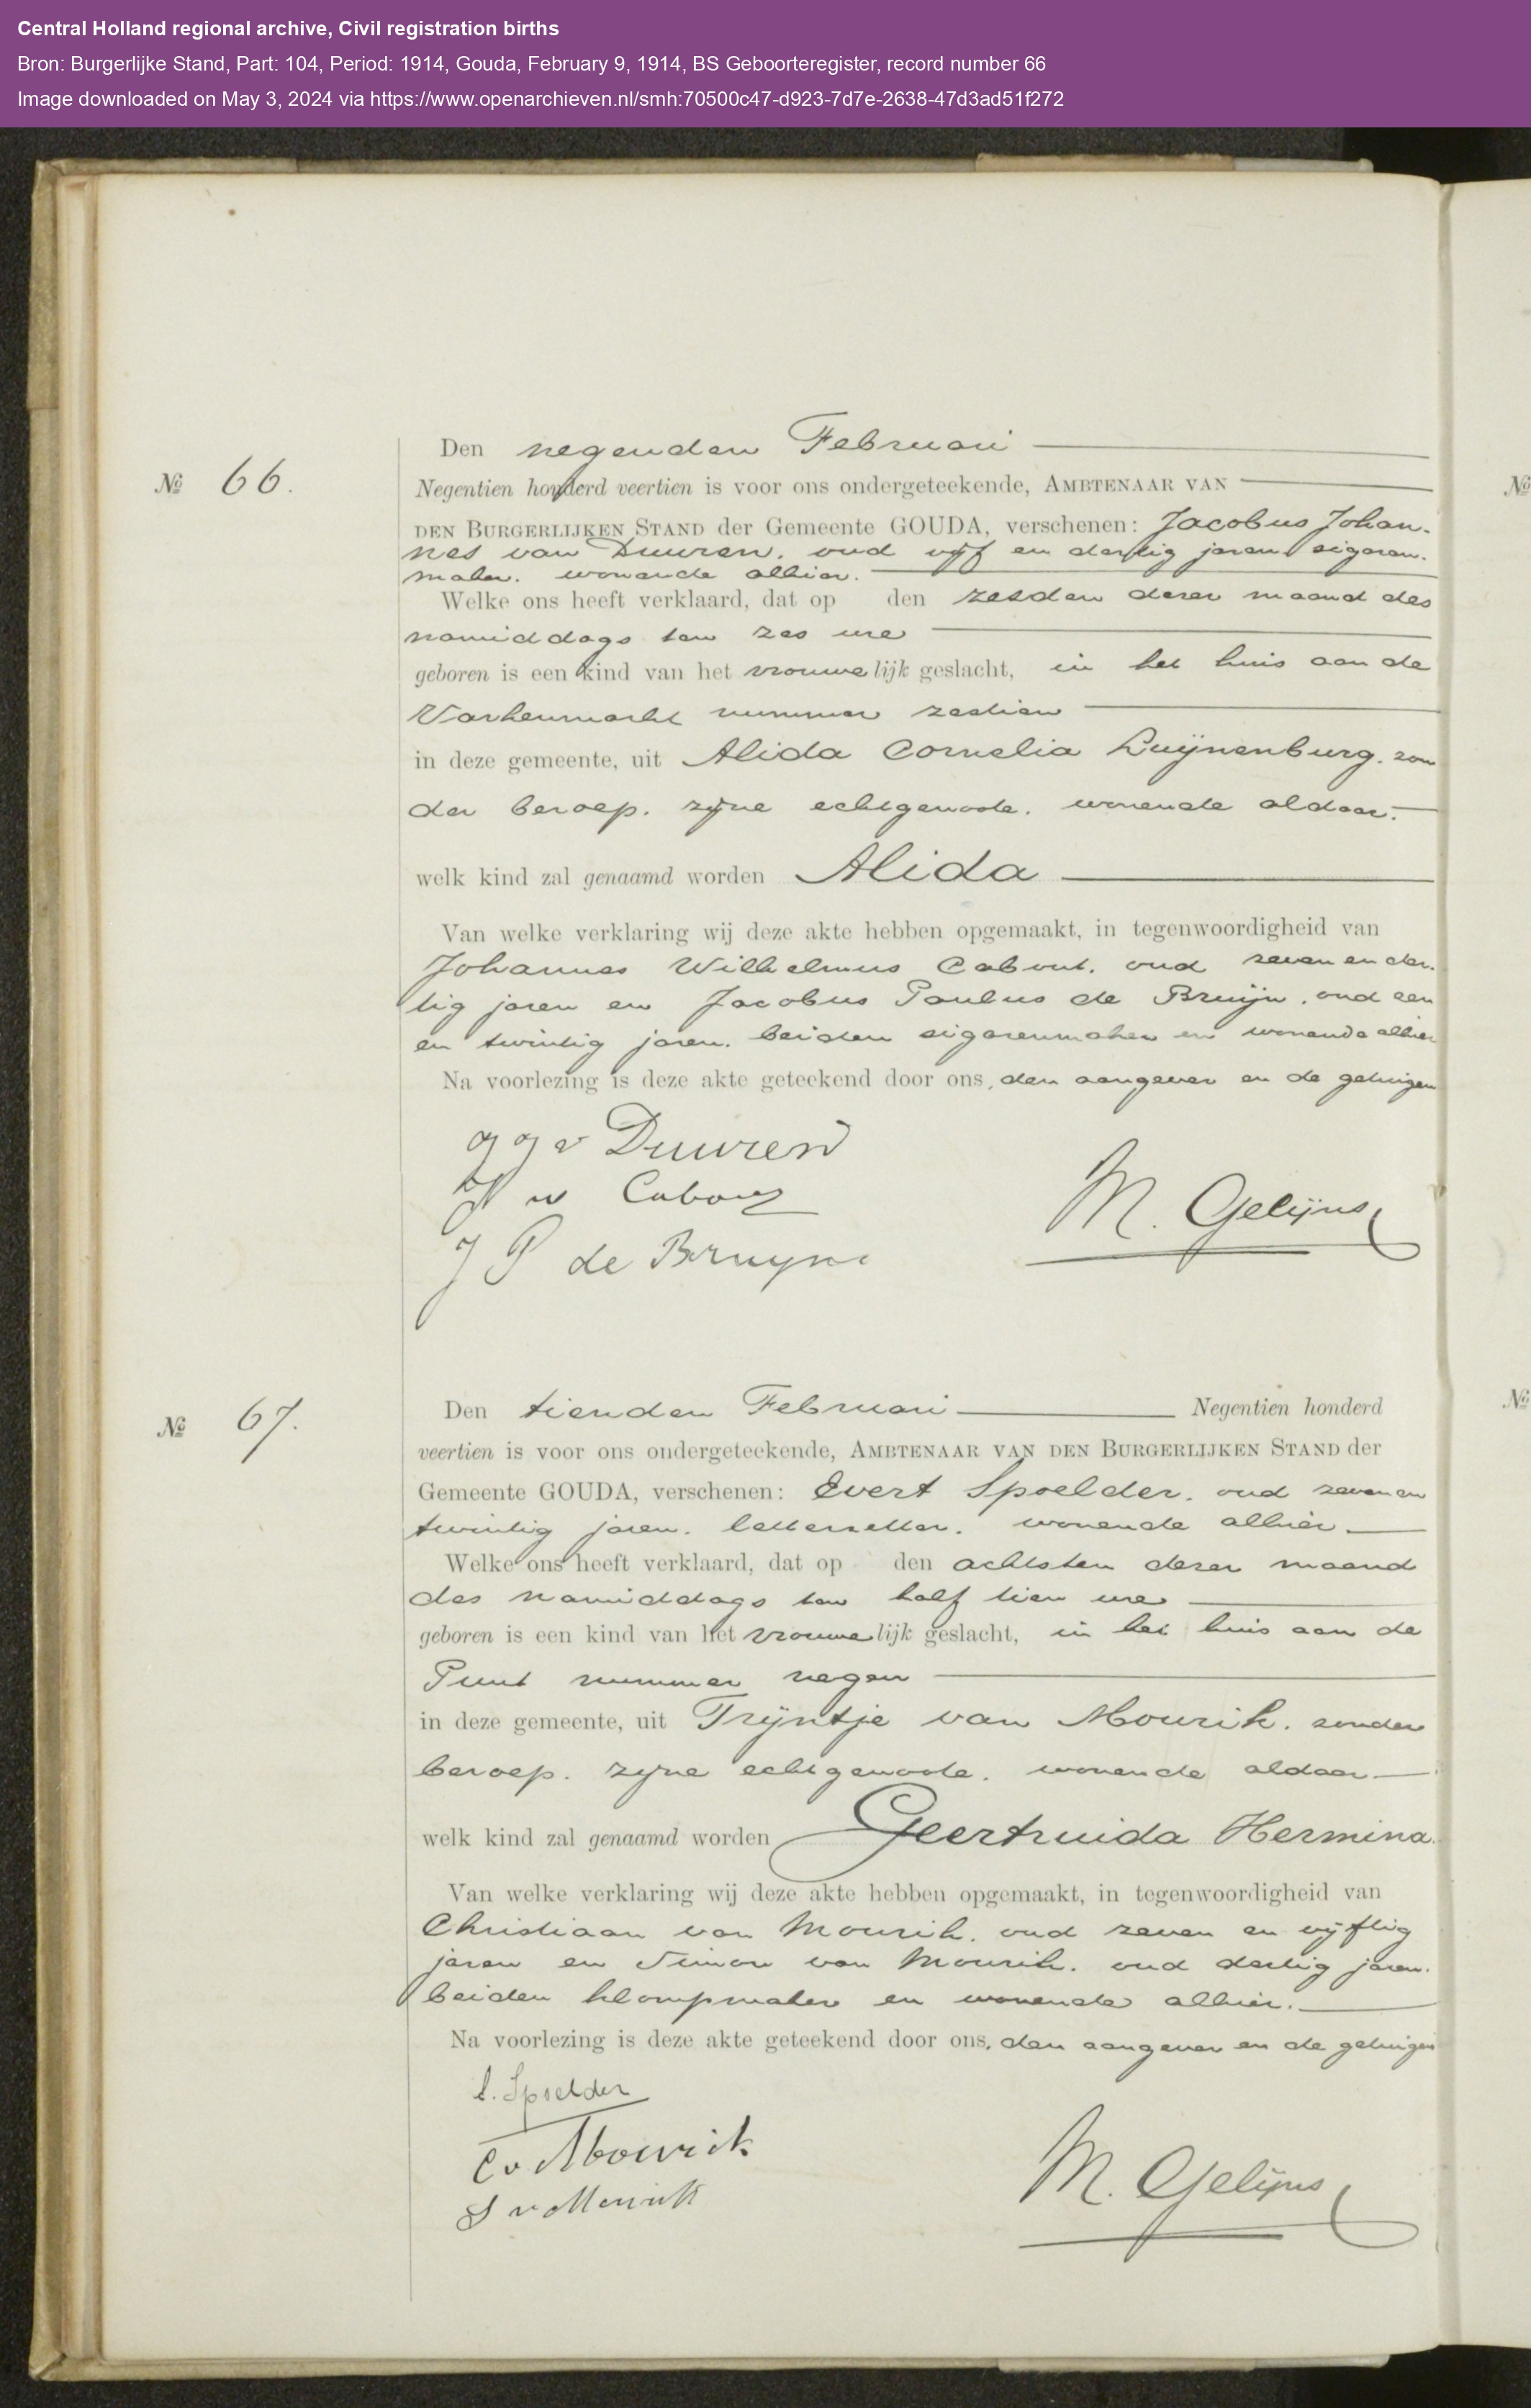 Central Holland regional archive, Civil registration births
Bron: Burgerlijke Stand, Part: 104, Period: 1914, Gouda, February 9, 1914, BS Geboorteregister, record number 66
Image downloaded on May 3, 2024 via https://www.openarchieven.nl/smh:70500c47-d923-7d7e-2638-47d3ad51f272
Den negenden Februari
No 66.
Negentien honderd veertien is voor ons ondergeteekende, AMBTENAAR VAN
DEN BURGERLIJKEN STAND der Gemeente GOUDA, verschenen: Jacobus Johan-
nes van Duuren, oud vijf en dertig jaren, sigaren-
maker, wonende alhier.
Welke ons heeft verklaard, dat op den zesden dezer maand des
namiddags ten zes ure
geboren is een kind van het vrouwelijk geslacht, in het huis aan de
Varkenmarkt nummer zestien
in deze gemeente, uit Alida Cornelia Luijnenburg, zon
der beroep, zijne echtgenoote, wonende aldaar.
welk kind zal genaamd worden Alida
Van welke verklaring wij deze akte hebben opgemaakt, in tegenwoordigheid van
Johannes Wilhelmus Cabout, oud zeven en der-
tig jaren en Jacobus Paulus de Bruijn, oud een
en twintig jaren, beiden sigarenmaker en wonende alhier
Na voorlezing is deze akte geteekend door ons, den aangever en de getuigen
J J v Duuren
J W Cabout
M. Gelijns
J P de Bruyn
Den tienden Februari Negentien honderd
No 67.
veertien is voor ons ondergeteekende, AMBTENAAR VAN DEN BURGERLIJKEN STAND der
Gemeente GOUDA, verschenen: Evert Spoelder, oud zeven en
twintig jaren, letterzetter, wonende alhier
Welke ons heeft verklaard, dat op den achtsten dezer maand
des namiddags ten half tien ure
geboren is een kind van het vrouwelijk geslacht, in het huis aan de
Punt nummer negen
in deze gemeente, uit Trijntje van Mourik, zonder
beroep, zijne echtgenoote, wonende aldaar
welk kind zal genaamd worden Geertruida Hermina.
Van welke verklaring wij deze akte hebben opgemaakt, in tegenwoordigheid van
Christiaan van Mourik, oud zeven en vijftig
jaren en Simon van Mourik, oud dertig jaren,
beiden klompmaker en wonende alhier.
Na voorlezing is deze akte geteekend door ons, den aangever en de getuigen
E. Spoelder
C v Mourik
M. Gelijns
S v Mourik
No
No